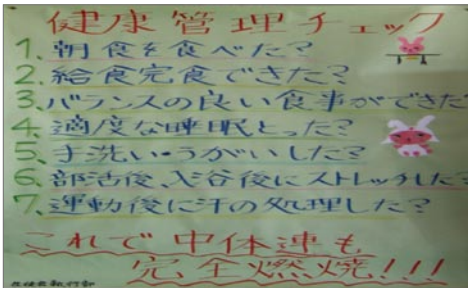 健康管理チェック
1、朝食を食べた?
2、給食完食できた?
3、バランスの良い食事ができた?
4、適度な睡眠とった?
5、手洗い・うがいした?
6、部活後、入浴後にストレッチした?
7、運動後に汗の処理した?
これで中体連も
完全燃焼!!!
生徒会執行部